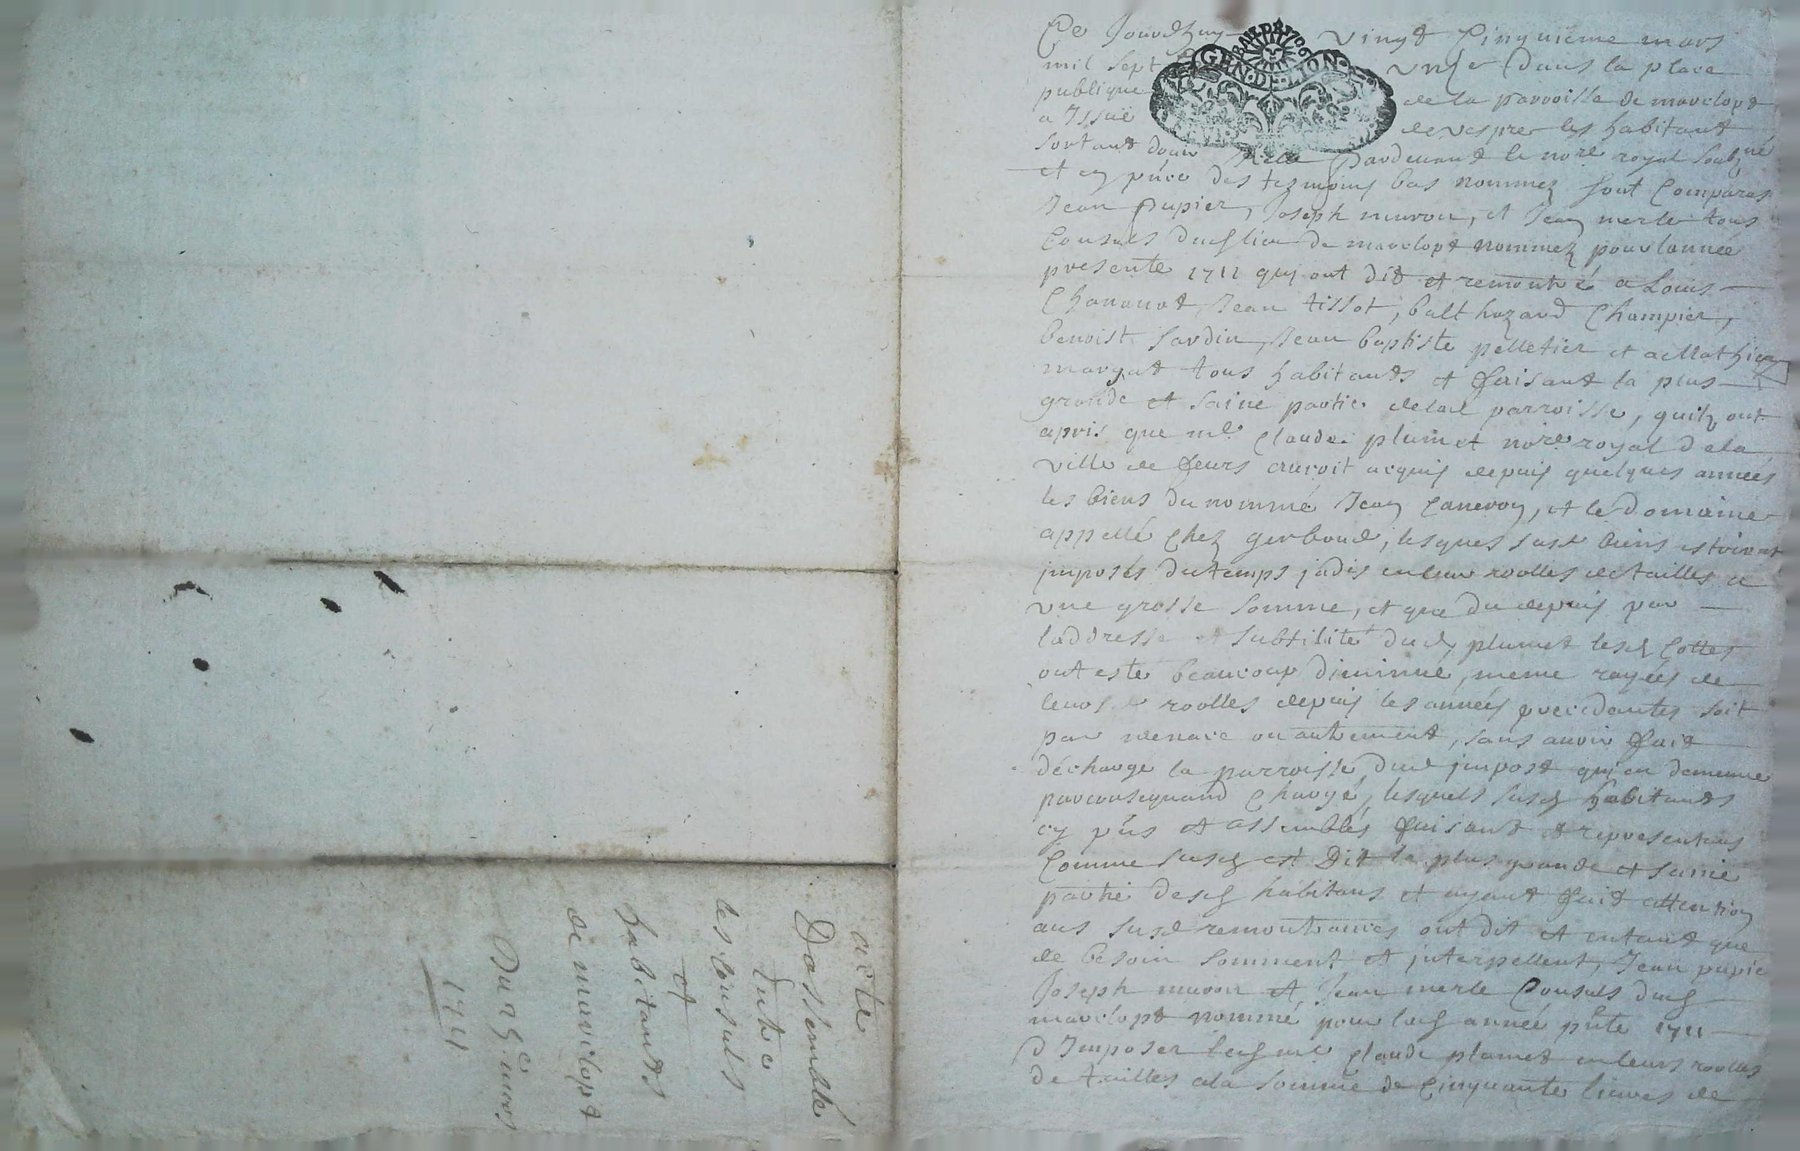 Ce Jourdhuy vingt Cinquieme mars
mil sept unze dans la place
publique de la parroisse de marclopt
a Issüe de vespre les habitant
sortant dycelle Pardevant le nore royal soubzné
et en pñce des tesmoins bas nommez sont Comparus
Jean Pupier, Joseph muron, et Jean merle tous
Consuls dud lieu de marclopt nommez pour lannée
presente 1711 quy ont dit et remontré a Louis
Chananat, Jean tissot, balthazard Champier,
benoist Jardin, Jean baptiste pelletier et a Mathieu
margat tous habitants et faisant la plus
grande et saine partie delad parroisse, quilz ont
apris que me Claude plumet nore royal de la
ville de feurs auroit acquis depuis quelques années
les biens du nommé Jean Canevoy, et le domaine
appellé Chez gerboud, lesques susd biens estoient
imposés du temps jadis en leur roolles de tailles a
une grosse somme, et que du depuis par
laddresse et subtilité dud plumet lesd Cottes
ont esté beaucoup diminué, meme rayées de
leurs roolles depuis les années precedantes soit
par menace ou autrement, sans avoir fait
décharge la parroisse dud impost qui en demeure
parconsequand Chargé, lesquels susd habitants
cy pñs et assemblés faisant et representans
Comme susd est dit la plus grande et saine
partie desd habitans et ayant fait attention
aus susd remontrances ont dit et entant que
de besoin somment et interpellent, Jean pupie
Joseph muron et Jean merle Consuls dud
marclopt nommé pour lad année pñte 1711
d Imposer led me Claude plumet en leurs roolles
de tailles ala somme de Cinquante livres de
acte
Dassemblé
Entre
les Consuls
et
habitants
de marclopt
Du 25e mars
1711
GEN·DE·LION